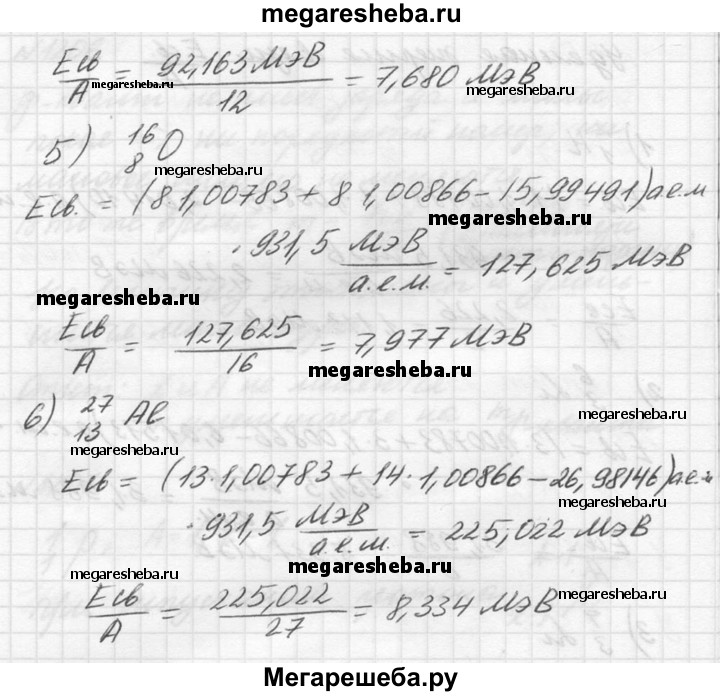 megaresheba.ru
Eсв/A = 92,163 МэВ/12 = 7,680 МэВ
megaresheba.ru
5) ¹⁶₈O
megaresheba.ru
Eсв. = (8 1,00783 + 8 1,00866 - 15,99491) а.е.м
megaresheba.ru
· 931,5 МэВ/а.е.м. = 127,625 МэВ
megaresheba.ru
Eсв/A = 127,625/16 = 7,977 МэВ
megaresheba.ru
6) ²⁷₁₃Al
megaresheba.ru
Eсв = (13·1,00783 + 14·1,00866 - 26,98146) а.е.м
megaresheba.ru
· 931,5 МэВ/а.е.м. = 225,022 МэВ
megaresheba.ru
megaresheba.ru
megaresheba.ru
Eсв/A = 225,022/27 = 8,334 МэВ
megaresheba.ru
Мегарешеба.ру